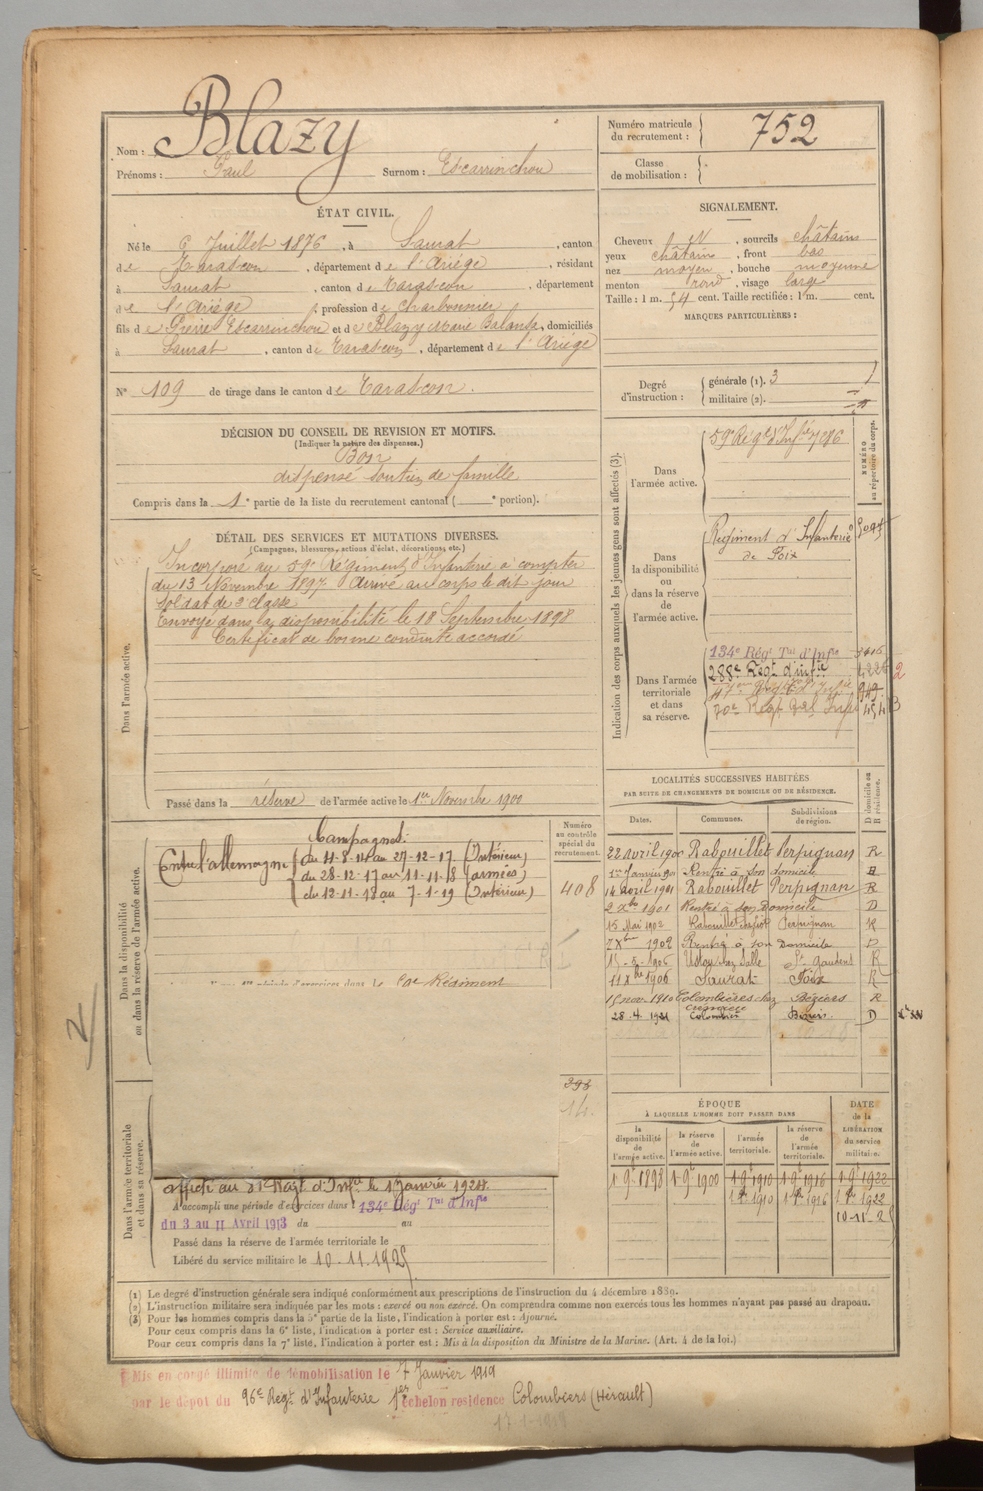 Nom : Blazy
Prénoms : Paul Surnom : Escarrinchou
Numéro matricule du recrutement : 752
Classe de mobilisation :
ÉTAT CIVIL.
Né le 6 Juillet 1876, à Saurat, canton
de Tarascon, département de l'Ariège, résidant
à Saurat, canton de Tarascon, département
de l'Ariège, profession de charbonnier
fils de Pierre Escarrinchou et de Blazy Marie, domiciliés
à Saurat, canton de Tarascon, département de l'Ariège
N° 109 de tirage dans le canton de Tarascon.
SIGNALEMENT.
Cheveux, sourcils châtains
yeux châtains, front bas
nez moyen, bouche moyenne
menton rond, visage large
Taille : 1 m. 54 cent. Taille rectifiée : 1 m. cent.
MARQUES PARTICULIÈRES :
Degré d'instruction : générale (1). 3
militaire (2).
DÉCISION DU CONSEIL DE REVISION ET MOTIFS.
(Indiquer la nature des dispenses.)
Bon
dispensé soutien de famille
Compris dans la 1e partie de la liste du recrutement cantonal ( e portion).
DÉTAIL DES SERVICES ET MUTATIONS DIVERSES.
(Campagnes, blessures, actions d'éclat, décorations, etc.)
Dans l'armée active.
Incorporé au 59e Régiment d'Infanterie à compter
du 13 Novembre 1897. Arrivé au corps le dit jour
Soldat de 2e classe
Envoyé dans la disponibilité le 18 Septembre 1898
Certificat de bonne conduite accordé
Passé dans la réserve de l'armée active le 1er Novembre 1900
Indication des corps auxquels les jeunes gens sont affectés (3).
NUMÉRO au répertoire du corps.
Dans l'armée active.
59e Régt d'Infie 7286
Dans la disponibilité ou dans la réserve de l'armée active.
Régiment d'Infanterie
de Foix
Dans l'armée territoriale et dans sa réserve.
134e Régt Tal d'Infie
288e Régt d'infie
Dans la disponibilité ou dans la réserve de l'armée active.
Campagnes.
Contre l'allemagne
du 11-8-14 au 27-12-17 (Intérieur)
du 28-12-17 au 11-11-18 (armées)
du 12-11-18 au 7-1-19 (Intérieur)
Numéro au contrôle spécial du recrutement.
408
398
14.
LOCALITÉS SUCCESSIVES HABITÉES
PAR SUITE DE CHANGEMENTS DE DOMICILE OU DE RÉSIDENCE.
Dates. Communes. Subdivisions de région. D domicile ou R résidence.
22 avril 1900 Rabouillet Perpignan R
1er Janvier 1901 Rentré à son domicile
14 avril 1901 Rabouillet Perpignan R
2 Xbre 1901 Rentré à son Domicile D
15 Mai 1902 Rabouillet Perpignan R
7 Xbre 1902 Rentré à son Domicile D
15-3-1906 St Gaudens R
11 Xbre 1906 Saurat Foix R
15 nov. 1910 Colombières Béziers R
28-4-1921 Colombiers Béziers D
ÉPOQUE
À LAQUELLE L'HOMME DOIT PASSER DANS
la disponibilité de l'armée active. la réserve de l'armée active. l'armée territoriale. la réserve de l'armée territoriale.
DATE de la LIBÉRATION du service militaire.
1 9e 1898 1 9e 1900 1 9e 1910 1 9e 1916 1 9e 1922
1 9e 1910 1 9e 1916 1 9e 1922
10-11-25
Dans l'armée territoriale et dans sa réserve.
A accompli une période d'exercices dans le 134e Régt Tal d'Infie
du 3 au 11 Avril 1913 du au
Passé dans la réserve de l'armée territoriale le
Libéré du service militaire le 10-11-1925
(1) Le degré d'instruction générale sera indiqué conformément aux prescriptions de l'instruction du 4 décembre 1889.
(2) L'instruction militaire sera indiquée par les mots : exercé ou non exercé. On comprendra comme non exercés tous les hommes n'ayant pas passé au drapeau.
(3) Pour les hommes compris dans la 5e partie de la liste, l'indication à porter est : Ajourné.
Pour ceux compris dans la 6e liste, l'indication à porter est : Service auxiliaire.
Pour ceux compris dans la 7e liste, l'indication à porter est : Mis à la disposition du Ministre de la Marine. (Art. 4 de la loi.)
Mis en congé illimité de démobilisation le 7 Janvier 1919
par le dépôt du 96e Régt d'Infanterie 1er échelon résidence Colombiers (Hérault)